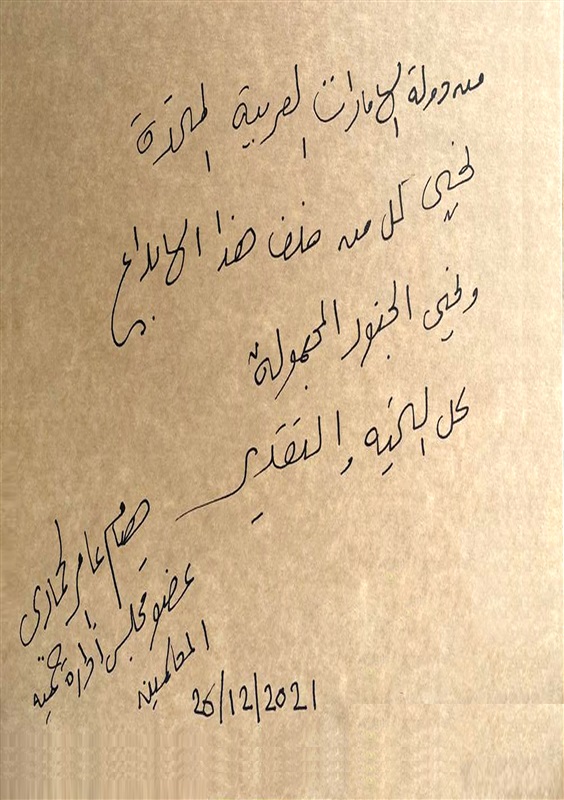 من دولة الإمارات العربية المتحدة
نحيي كل من خلف هذا الابداع
ونحيي الجنود المجهولة
كل التحية والتقدير
عامر الحمادي
عضو مجلس إدارة جمعية
المعلمين
26/12/2021